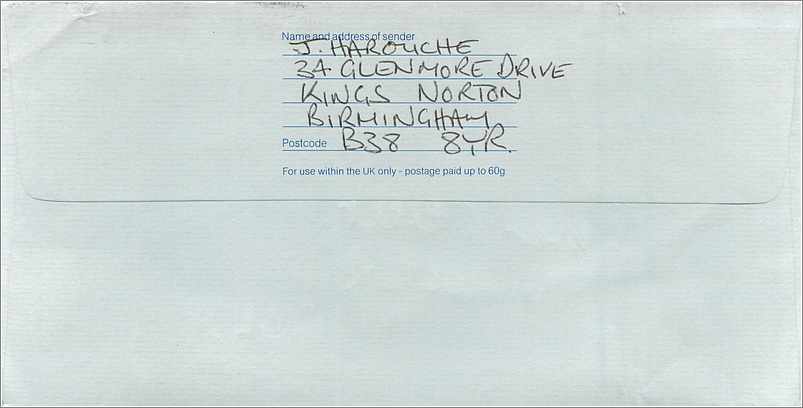 Name and address of sender
J. HAROUCHE
34 GLENMORE DRIVE
KINGS NORTON
BIRMINGHAM
Postcode B38 8YR.
For use within the UK only - postage paid up to 60g